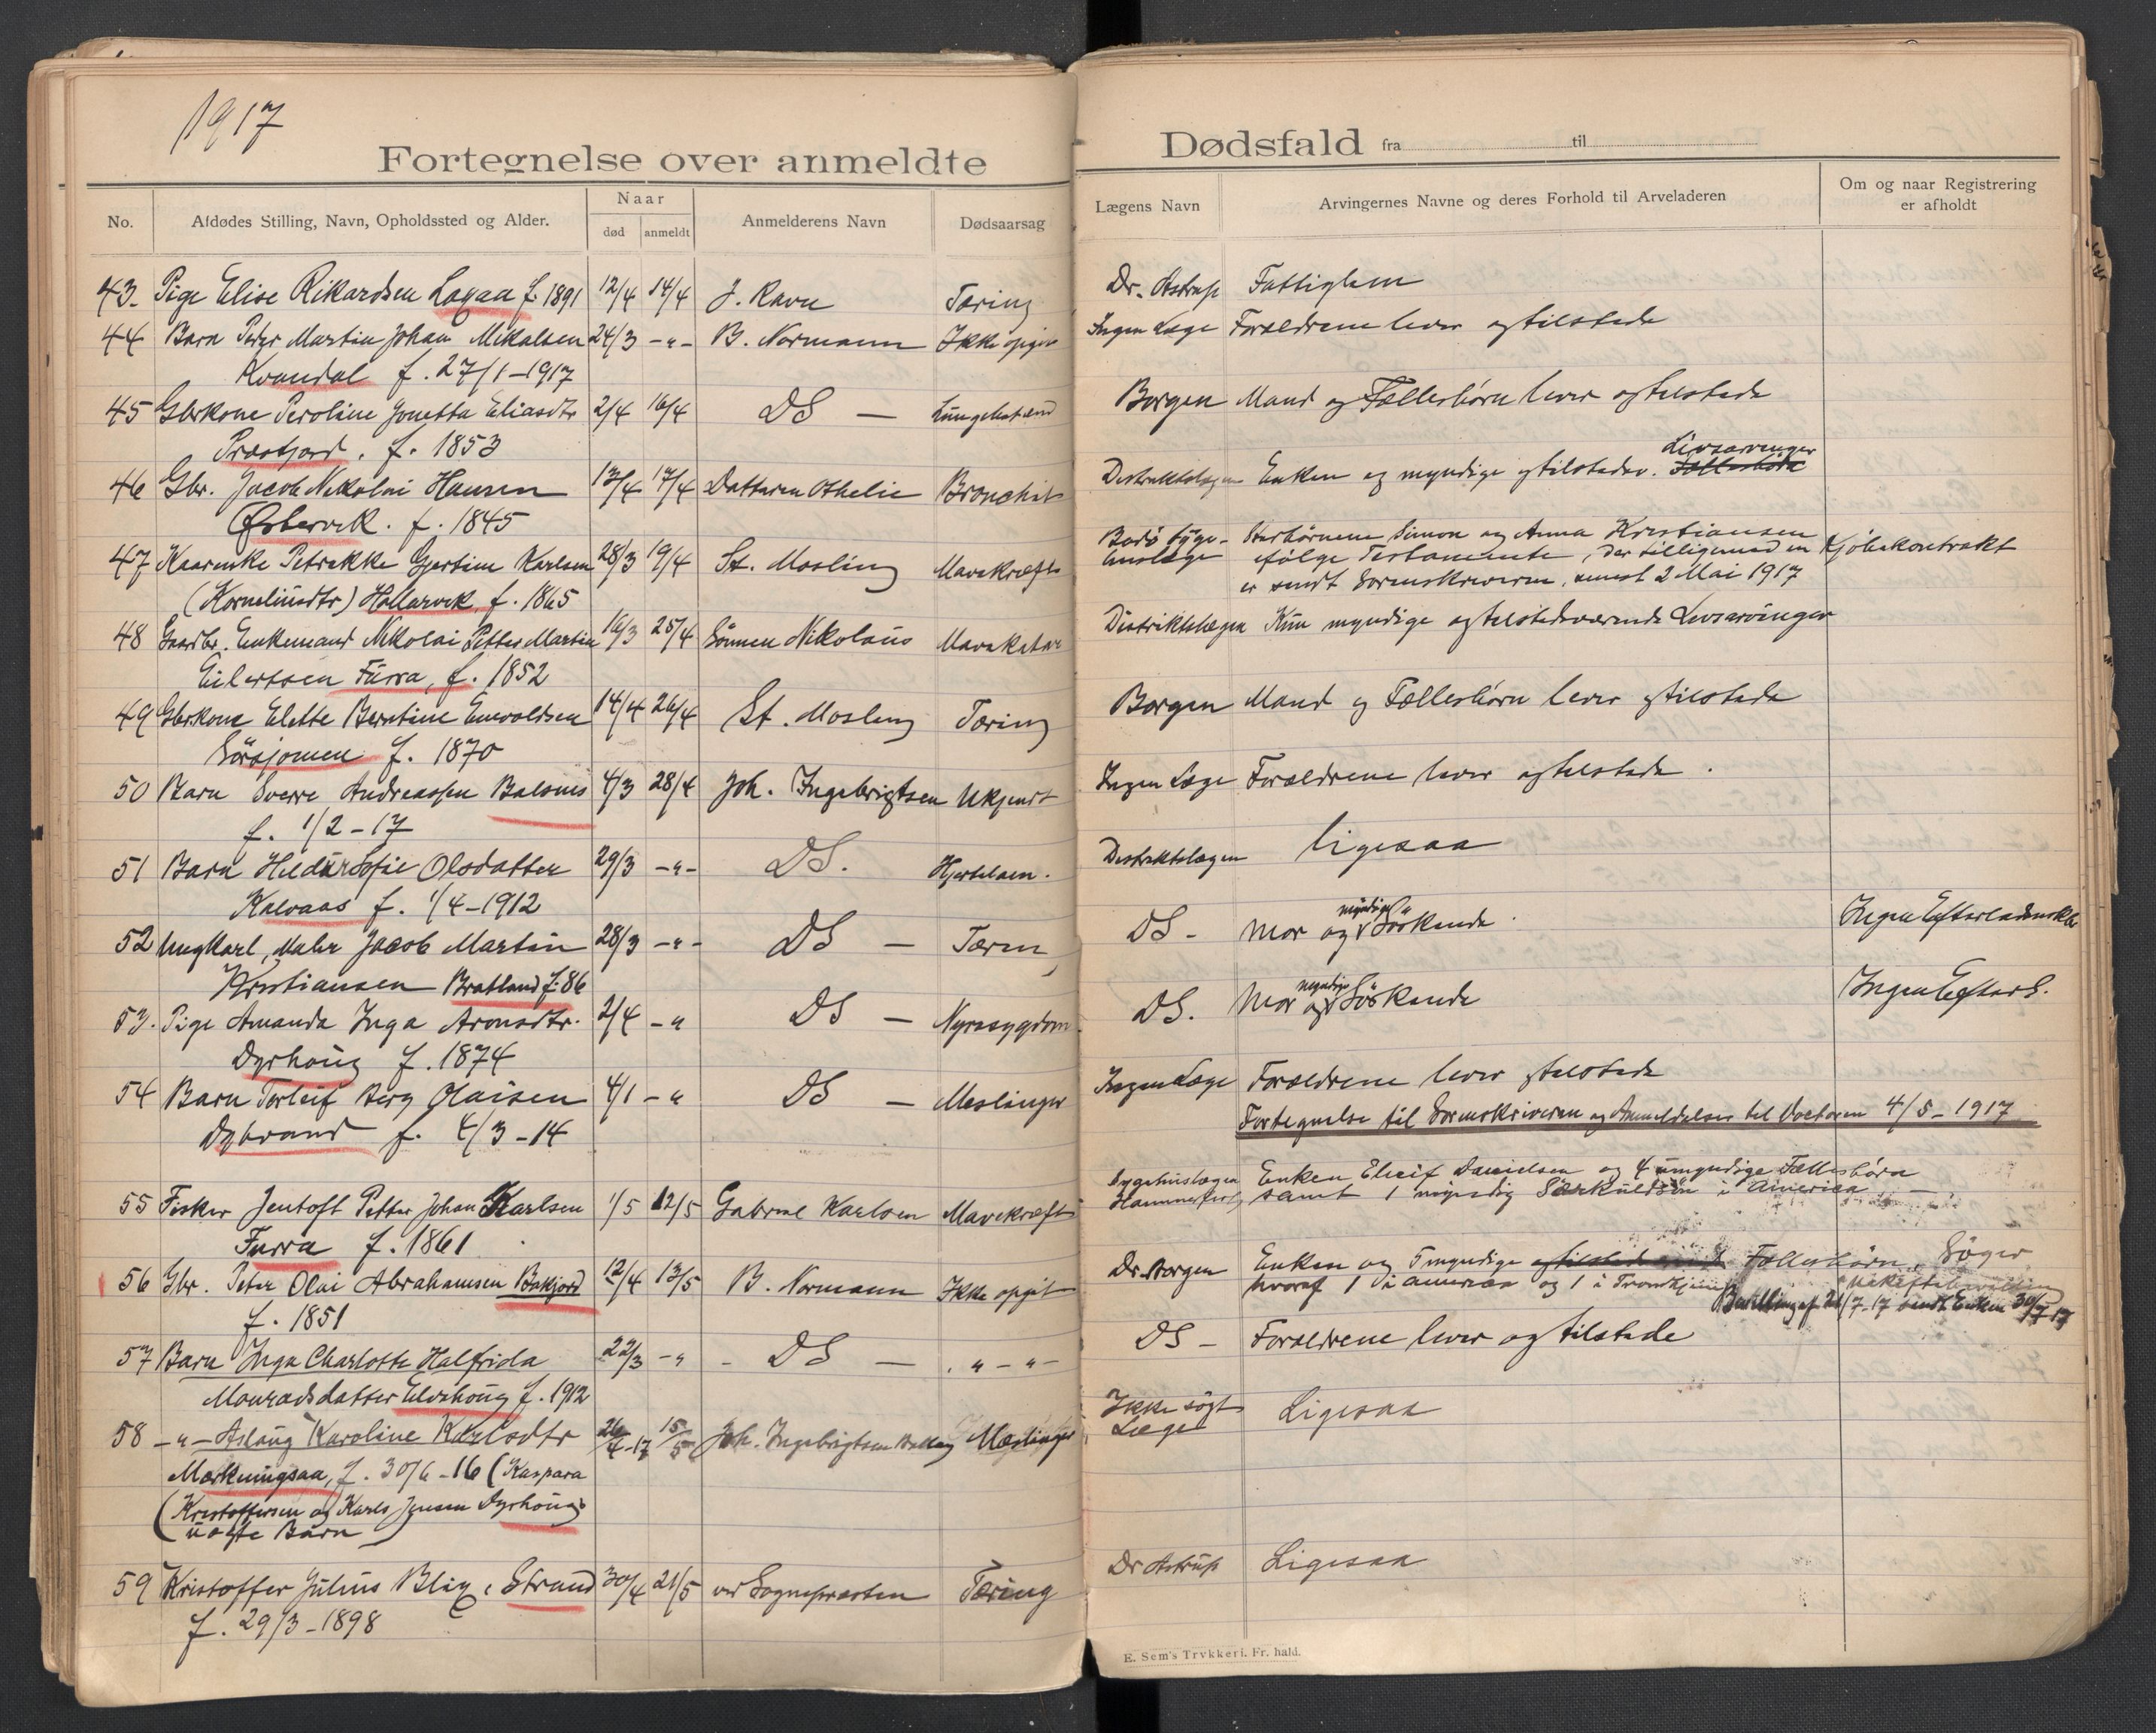 1917
Fortegnelse over anmeldte
Dødsfald fra til
No.
Afdødes Stilling, Navn, Opholdssted og Alder.
Naar
død
anmeldt
Anmelderens Navn
Dødsaarsag
Lægens Navn
Arvingernes Navne og deres Forhold til Arveladeren
Om og naar Registrering
er afholdt
43. Pige Elise Rikardsen Laxaa f. 1891 12/4 14/4 J. Ravn Tæring Dr. Astrup Fattiglem
44 Barn Peder Martin Johan Mikalsen 24/3 -"- B. Normann Ikke opgiv Ingen Læge Forældrene lever og tilstede
Kvandal f. 27/1-1917
45 Gbrkone Peroline Jonetta Eliasdtr 2/4 16/4 DS — Lungebetænd Borgen Mand og Fællesbørn lever og tilstede
Præstjord. f. 1853
Livsarvinger
46 Gbr. Jacob Nikolai Hansen 13/4 17/4 Datteren Othelie Bronchit Distriktslægen Enken og myndige og tilstedev. Fællesbørn
Østervik. f. 1845
47 Kaarenke Petrekke Gjertine Karlsen 28/3 19/4 St. Mosling Mavekræft Bodø Syge- Sterbørnene Simon og Anna Kristiansen
huslæge ifølge Testamente, der tilligemed en Kjøbekontrakt
(Korneliusdtr) Hallarvik f. 1865 er sendt Sorenskriveren, senest 2 Mai 1917
48 Gaardbr. Enkemand Nikolai Petter Martin 16/3 25/4 Sønnen Nikolaus Mavekatar Distriktslægen Kun myndige og tilstedeværende Livsarvinger
Eilertsen Furra, f. 1852
49 Gbrkone Elette Berntine Enevoldsen 14/4 26/4 St. Mosling Tæring Borgen Mand og Fællesbørn lever og tilstede
Sørsjomen f. 1870
50 Barn Sverre Andreassen Balsnes 4/3 28/4 Joh. Ingebrigtsen Ukjendt Ingen Læge Forældrene lever og tilstede.
f. 1/2-17
51 Barn Hildur Sofie Olsdatter 29/3 -"- DS. Hjertelam. Distriktslægen Ligesaa
Kalvaas f. 1/4-1912
myndige
52 Ungkarl, Maler Jacob Martin 28/3 -"- DS — Tæren DS - Mor og Søskende. Ingen Efterladenskb
Kristiansen Bratland f. 86
myndige
53. Pige Amanda Inga Aronsdtr. 2/4 -" DS — Nyresygdom DS. Mor og Søskende Ingen Efterl.
Dyrhaug f. 1874
54 Barn Torleif Berg Olaisen 4/1 -" DS — Meslinger Ingen Læge Forældrene lever og tilstede
Dybvand f. 4/3-14
Fortegnelse til Sorenskriveren og Anmeldelser til Doctoren 4/5-1917
55 Fisker Jentoft Petter Johan Karlsen 1/5 12/5 Gabriel Karlsen Mavekræft Sygehuslægen Enken Elleif Danielsen og 4 umyndige Fællesbørn
Hammerfest, samt 1 myndig Særkuldsøn i Amerika
Furra f. 1861
56 Gbr. Peter Olai Abrahamsen Bakjord 12/4 13/5 B. Normann Ikke opgit Dr. Borgen Enken og 5 myndige og tilstedeværende Fællesbørn, Søger
hvoraf 1 i Amerika og 1 i Trondhjem uskiftebevilling
f. 1851
Bevilling af 21/7-17 sendt Enken 30/7 17
57 Barn Inga Charlotte Halfrida 22/3 -" - DS — "-"- DS - Forældrene lever og tilstede
Monradsdatter Elvehaug f. 1912
58 -"- Aslaug Karoline Karlsdtr 26/4-17 15/5 Joh. Ingebrigtsen Meslinger Ikke søgt Læge Ligesaa
Mørkningsaa, f. 30/6-16 (Kaspara
(Kristoffersen og Karls Jensen Dyrhaugs
uægte Barn)
59 Kristoffer Julius Blix, Strand 30/4 21/5 ved Sognepræsten Tæring Dr Astrup Ligesaa
f. 29/3-1898
E. Sem's Trykkeri. Fr. hald.